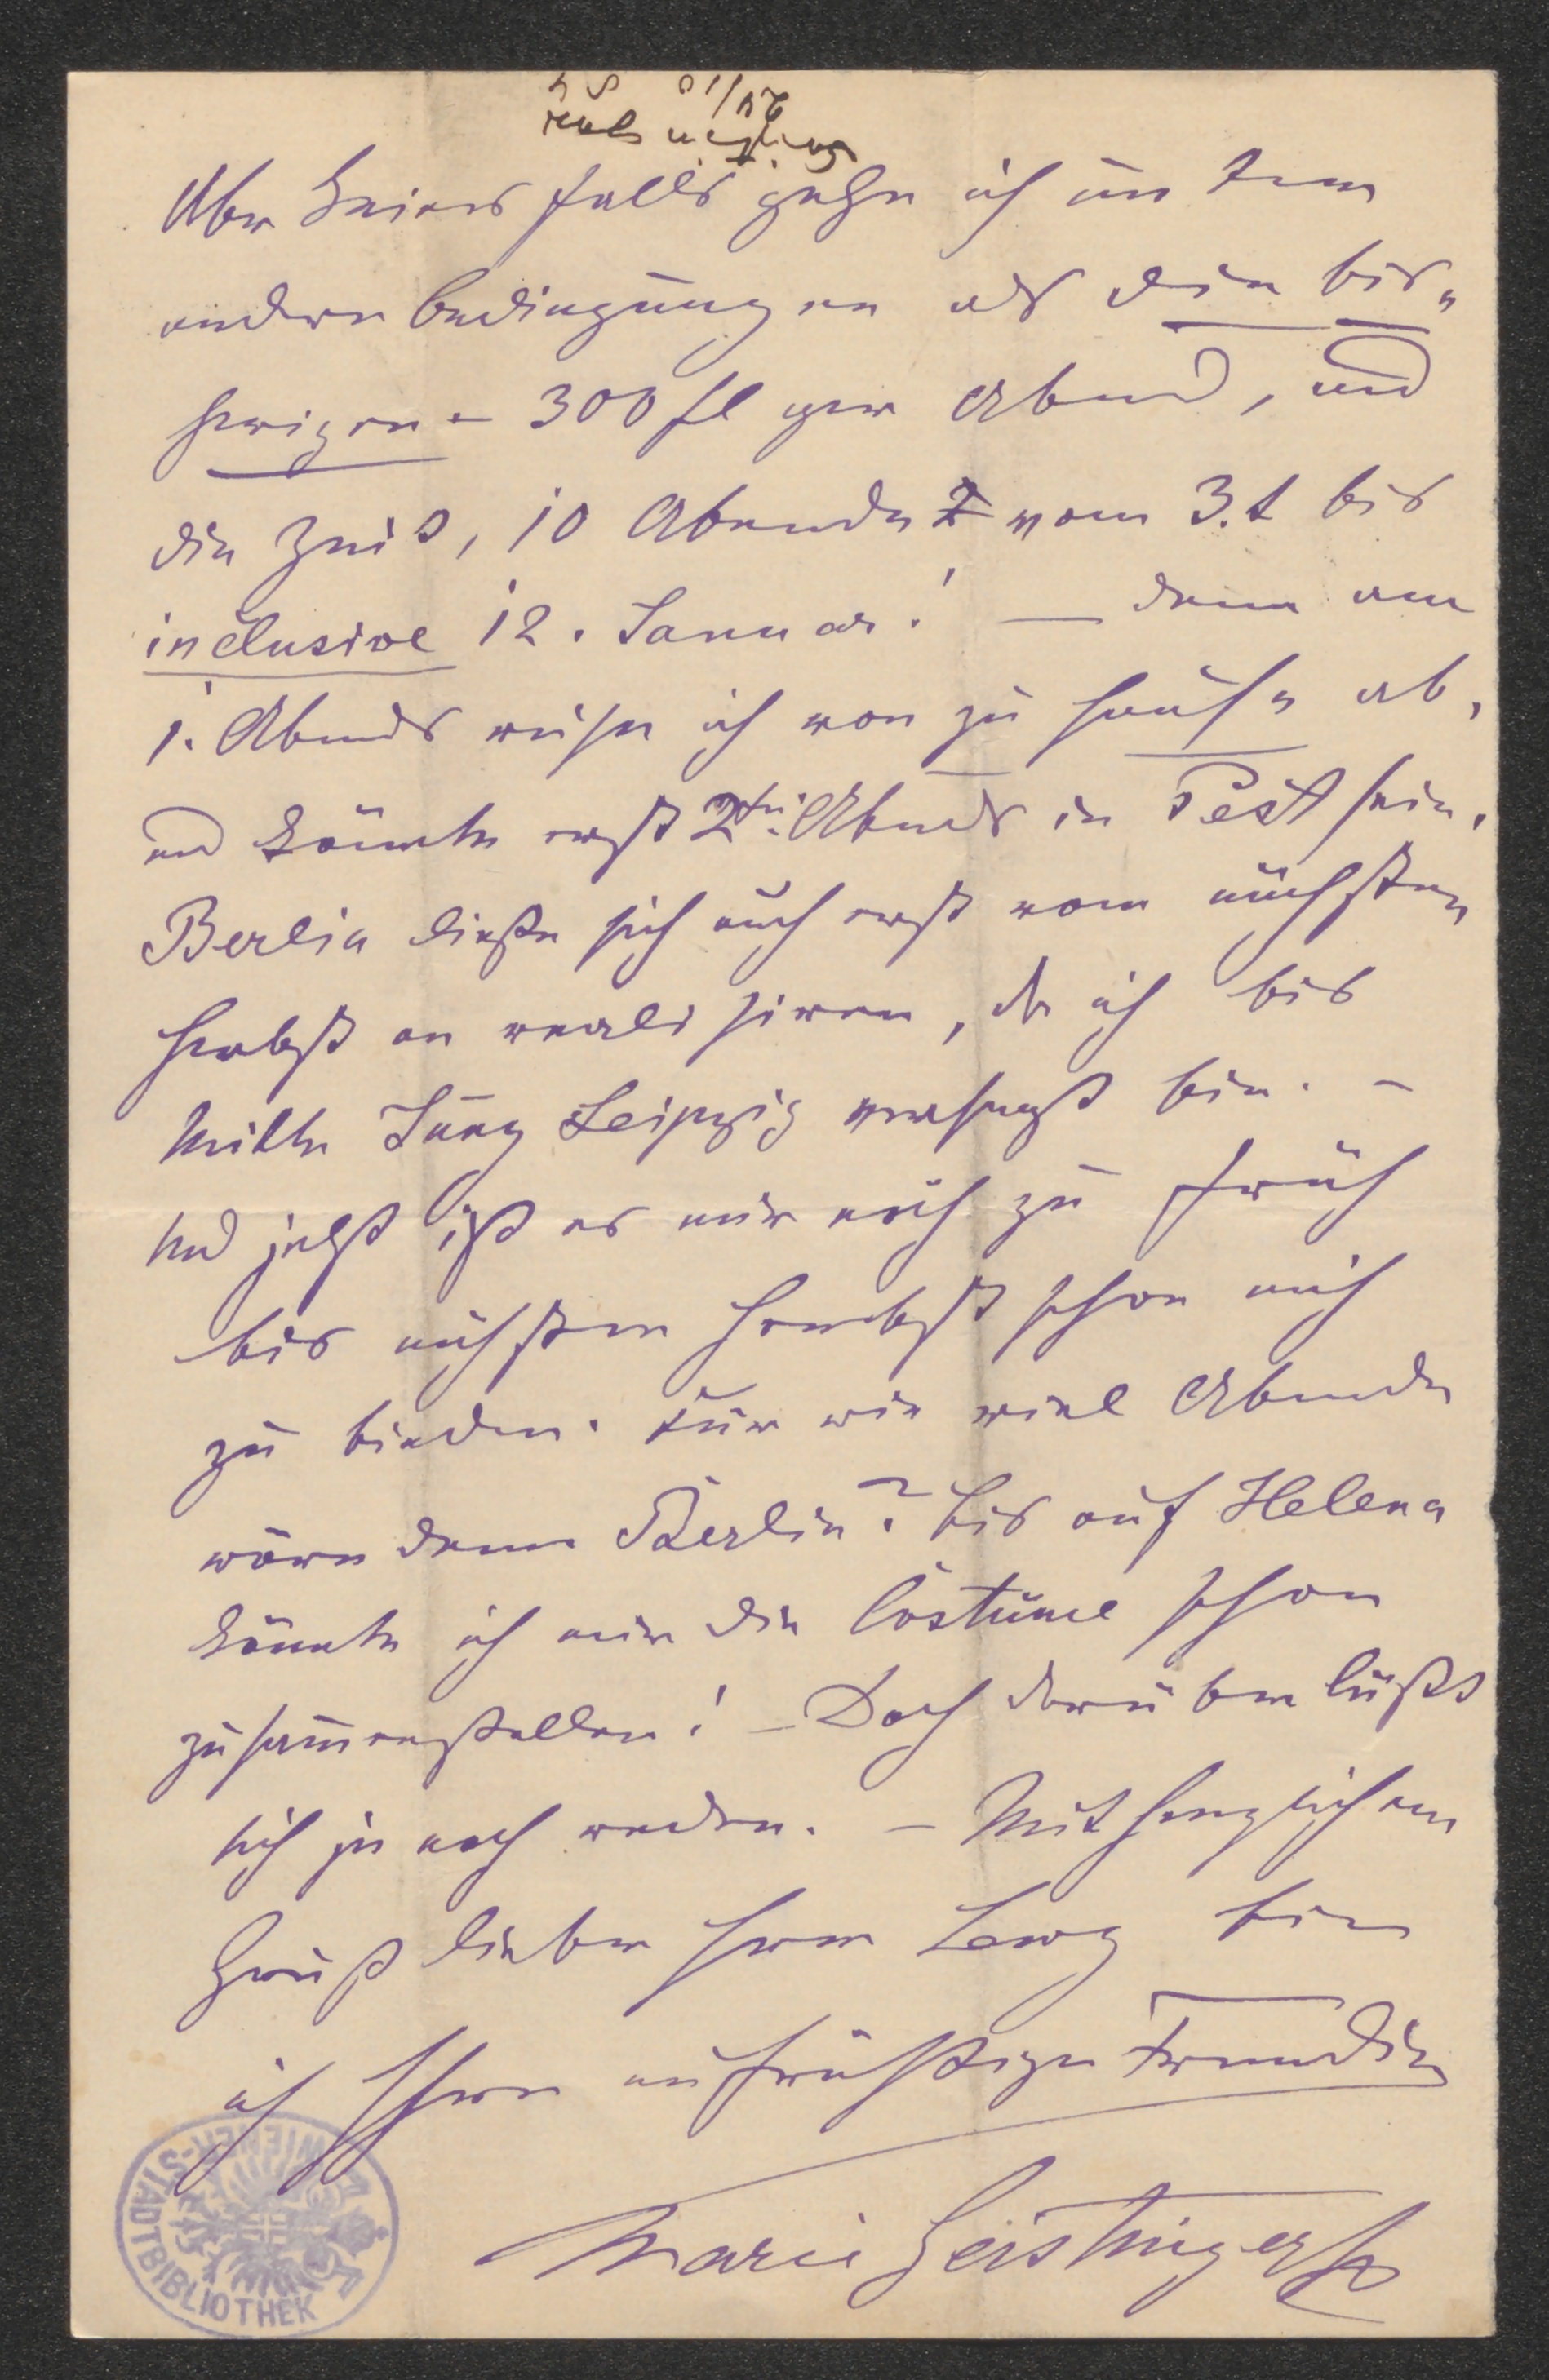 Aber keines falls gehe ich unter
andere Bedingungen als die bis„
herigen – 300 fl per Abend, und
die Zeit, 10 Abende vom 3.t bis
inclusive 12. Januar! — denn am
1. Abends reise ich von zu Hause ab,
und könnte erst 2ten Abends in Pest sein.
Berlin ließe sich auch erst vom nächsten
Herbst an realisiren, da ich bis
Mitte Juny Leipzig verpflichtet bin. –
Und jetzt ist es mir noch zu früh
bis nächsten Herbst schon mich
zu binden. Für wie viel Abende
wäre denn Berlin? bis auf Helena
könnte ich mir die Costüme schon
zusam̄enstellen! – Doch darüber läßt
sich ja noch reden. – Mit herzlichem
Gruß lieber Herr Lewy bin
ich Ihre aufrichtige Freundin
Marie Geistinger
WIENER STADTBIBLIOTHEK